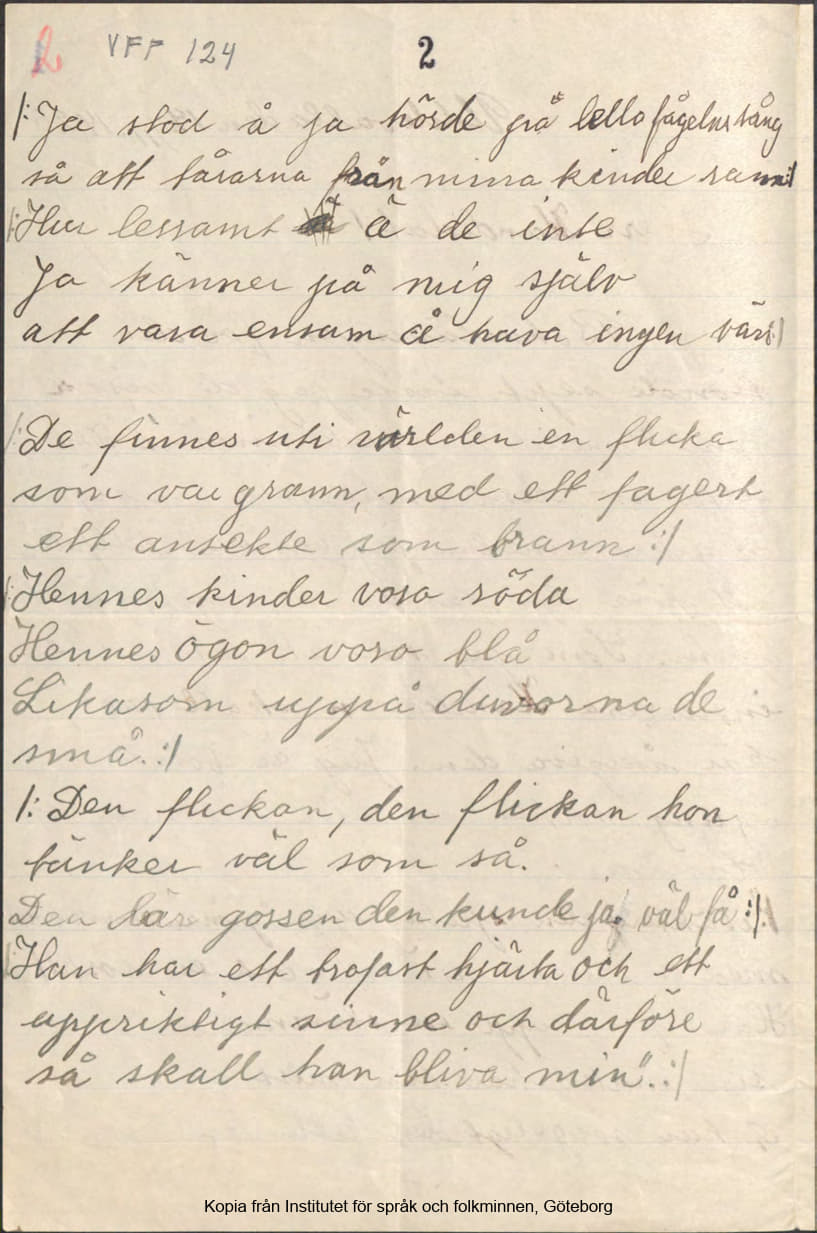 2 VFF 124 2
/: Ja stod å ja hörde på lello fågelns sång
så att tårarna från mina kinder rann :/
/: Hur lessamt ä de inte
Ja känner på mig själv
att vara ensam å hava ingen vän :/
/: De finnes uti världen en flicka
som var grann, med ett fagert
ett ansekte som brann :/
/: Hennes kinder voro röda
Hennes ögon voro blå
Likasom uppå duvorna de
små. :/
/: Den flickan, den flickan hon
tänker väl som så.
Den här gossen den kunde ja väl få :/.
/: Han har ett trofast hjärta och ett
uppriktigt sinne och därföre
så skall han bliva min". :/
Kopia från Institutet för språk och folkminnen, Göteborg